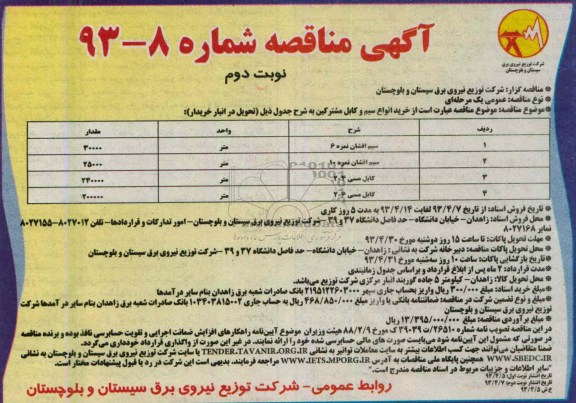 آگهی مناقصه شماره ۸-۹۳
نوبت دوم
شرکت توزیع نیروی برق
سیستان و بلوچستان
* مناقصه گزار: شرکت توزیع نیروی برق سیستان و بلوچستان
* نوع مناقصه: عمومی یک مرحله‌ای
* موضوع مناقصه: موضوع مناقصه عبارت است از خرید انواع سیم و کابل مشترکین به شرح جدول ذیل (تحویل در انبار خریدار):
ردیف شرح واحد مقدار
۱ سیم افشان نمره ۶ متر ۳۰۰۰۰
۲ سیم افشان نمره ۱۰ متر ۲۵۰۰۰
۳ کابل مسی ۴*۲ متر ۲۴۰۰۰۰
۴ کابل مسی ۶*۲ متر ۲۰۰۰۰۰
* تاریخ فروش اسناد: از تاریخ ۹۳/۴/۷ لغایت ۹۳/۴/۱۴ به مدت ۵ روز کاری
* محل فروش اسناد: زاهدان- خیابان دانشگاه- حد فاصل دانشگاه ۳۷ و ۳۹ -شرکت توزیع نیروی برق سیستان و بلوچستان- امور تدارکات و قراردادها- تلفن ۸۰۲۷۰۱۲-۸۰۲۷۱۵۵
نمابر ۸۰۲۷۱۶۸
* مهلت تحویل پاکات: تا ساعت ۱۵ روز دوشنبه مورخ ۹۳/۴/۳۰
* محل تحویل پاکات مناقصه: دبیرخانه شرکت به نشانی: زاهدان- خیابان دانشگاه- حد فاصل دانشگاه ۳۷ و ۳۹ -شرکت توزیع نیروی برق سیستان و بلوچستان
* تاریخ بازگشایی پاکات: ساعت ۱۰ روز سه‌شنبه مورخ ۹۳/۴/۳۱
* مدت قرارداد: ۲ ماه پس از ابلاغ قرارداد و براساس جدول زمانبندی
* محل تحویل کالا: زاهدان- کیلومتر ۵ جاده گوربند انبار مرکزی شرکت توزیع می‌باشد.
* مبلغ خرید اسناد: مبلغ ۳۰۰/۰۰۰ ریال واریز بحساب جاری سپهر ۲۱۹۵۱۲۲۶۰۳۰۰۰ بانک صادرات شعبه برق زاهدان بنام سایر درآمدها
* مبلغ و نوع تضمین شرکت در مناقصه: ضمانتنامه بانکی یا واریز مبلغ ۴۶۸/۸۵۰/۰۰۰ ریال به حساب جاری ۱۰۳۴۰۳۸۱۵۰۰۲ بانک صادرات شعبه برق زاهدان بنام سایر درآمدها شرکت
توزیع نیروی برق سیستان و بلوچستان
* مبلغ برآوردی مناقصه: مبلغ ۱۳/۳۹۵/۰۰۰/۰۰۰ ریال
در این مناقصه تصویب نامه شماره ۲۶۵۱۰/ت ۳۹۰۳۹ ک مورخ ۸۸/۲/۹ هیئت وزیران موضوع آیین‌نامه راهکارهای افزایش ضمانت اجرایی و تقویت حسابرسی نافذ بوده و برنده مناقصه
در صورتی که مشمول این آیین‌نامه شود می‌بایست صورت های مالی حسابرسی شده خود را ارائه نمایند. در غیر این صورت از واگذاری قرارداد خودداری می‌گردد.
ضمنا متقاضیان می‌توانند جهت کسب اطلاعات بیشتر به سایت معاملات توانیر به نشانی TENDER.TAVANIR.ORG.IR یا سایت شرکت توزیع برق سیستان و بلوچستان به نشانی
WWW.SBEDC.IR همچنین پایگاه ملی مناقصات به آدرس WWW.IETS.MPORG.IR مراجعه فرمایند. بدیهی است این شرکت در رد یا قبول پیشنهادات مختار است.
"سایر اطلاعات و جزئیات مربوط در اسناد مناقصه مندرج است."
تاریخ انتشار نوبت اول: ۹۳/۴/۵
تاریخ انتشار نوبت دوم: ۹۳/۴/۷
خ ش ۹۳/۴/۵
روابط عمومی- شرکت توزیع نیروی برق سیستان و بلوچستان